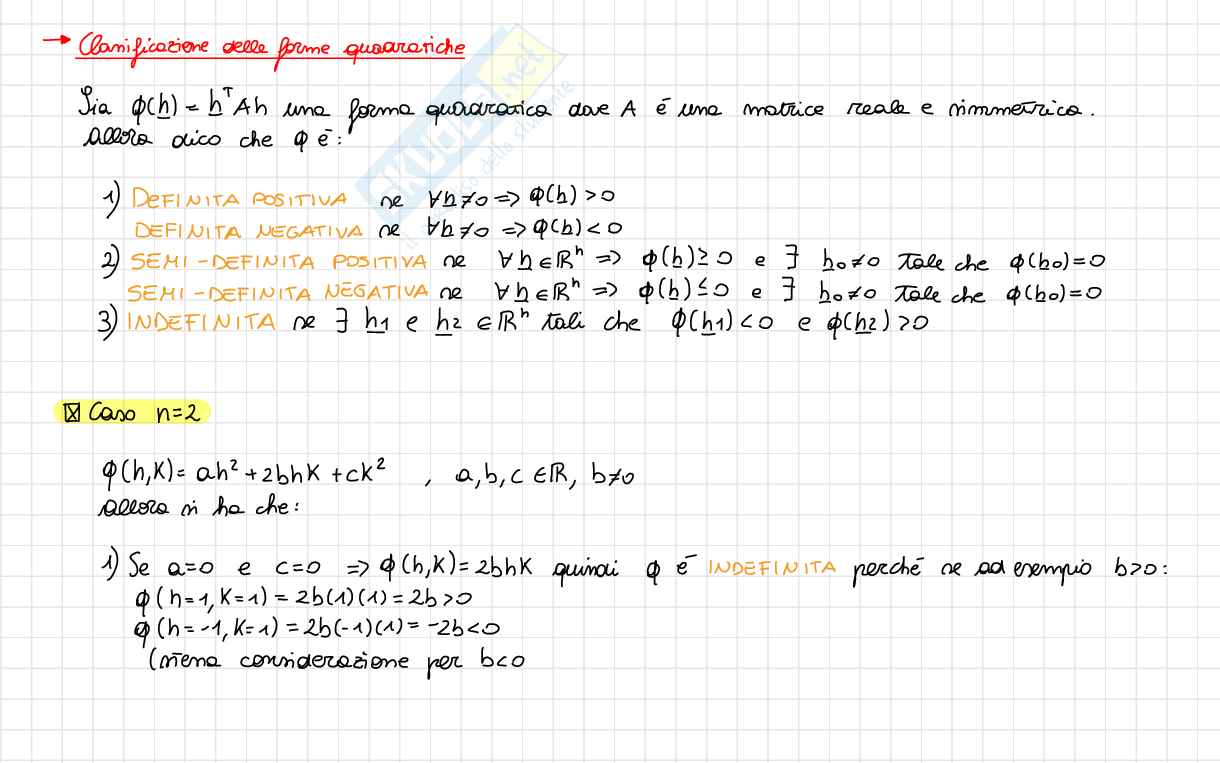 → Classificazione delle forme quadratiche
Sia φ(h) = hᵀAh una forma quadratica dove A é una matrice reale e simmetrica.
Allora dico che φ é:
1) DEFINITA POSITIVA se ∀h≠0 => φ(h)>0
DEFINITA NEGATIVA se ∀h≠0 => φ(h)<0
2) SEMI-DEFINITA POSITIVA se ∀h∈ℝⁿ => φ(h)≥0 e ∃ h₀≠0 tale che φ(h₀)=0
SEMI-DEFINITA NEGATIVA se ∀h∈ℝⁿ => φ(h)≤0 e ∃ h₀≠0 tale che φ(h₀)=0
3) INDEFINITA se ∃ h1 e h2 ∈ℝⁿ tali che φ(h1)<0 e φ(h2)>0
Caso n=2
φ(h,K)= ah²+2bhK+ck² , a,b,c ∈ℝ, b≠0
allora si ha che:
1) Se a=0 e c=0 => φ(h,K)=2bhK quindi φ é INDEFINITA perché se ad esempio b>0:
φ(h=1,K=1) = 2b(1)(1)=2b>0
φ(h=-1,K=1) = 2b(-1)(1)=-2b<0
(stessa considerazione per b<0
SKUOLA.net
il paradiso dello studente